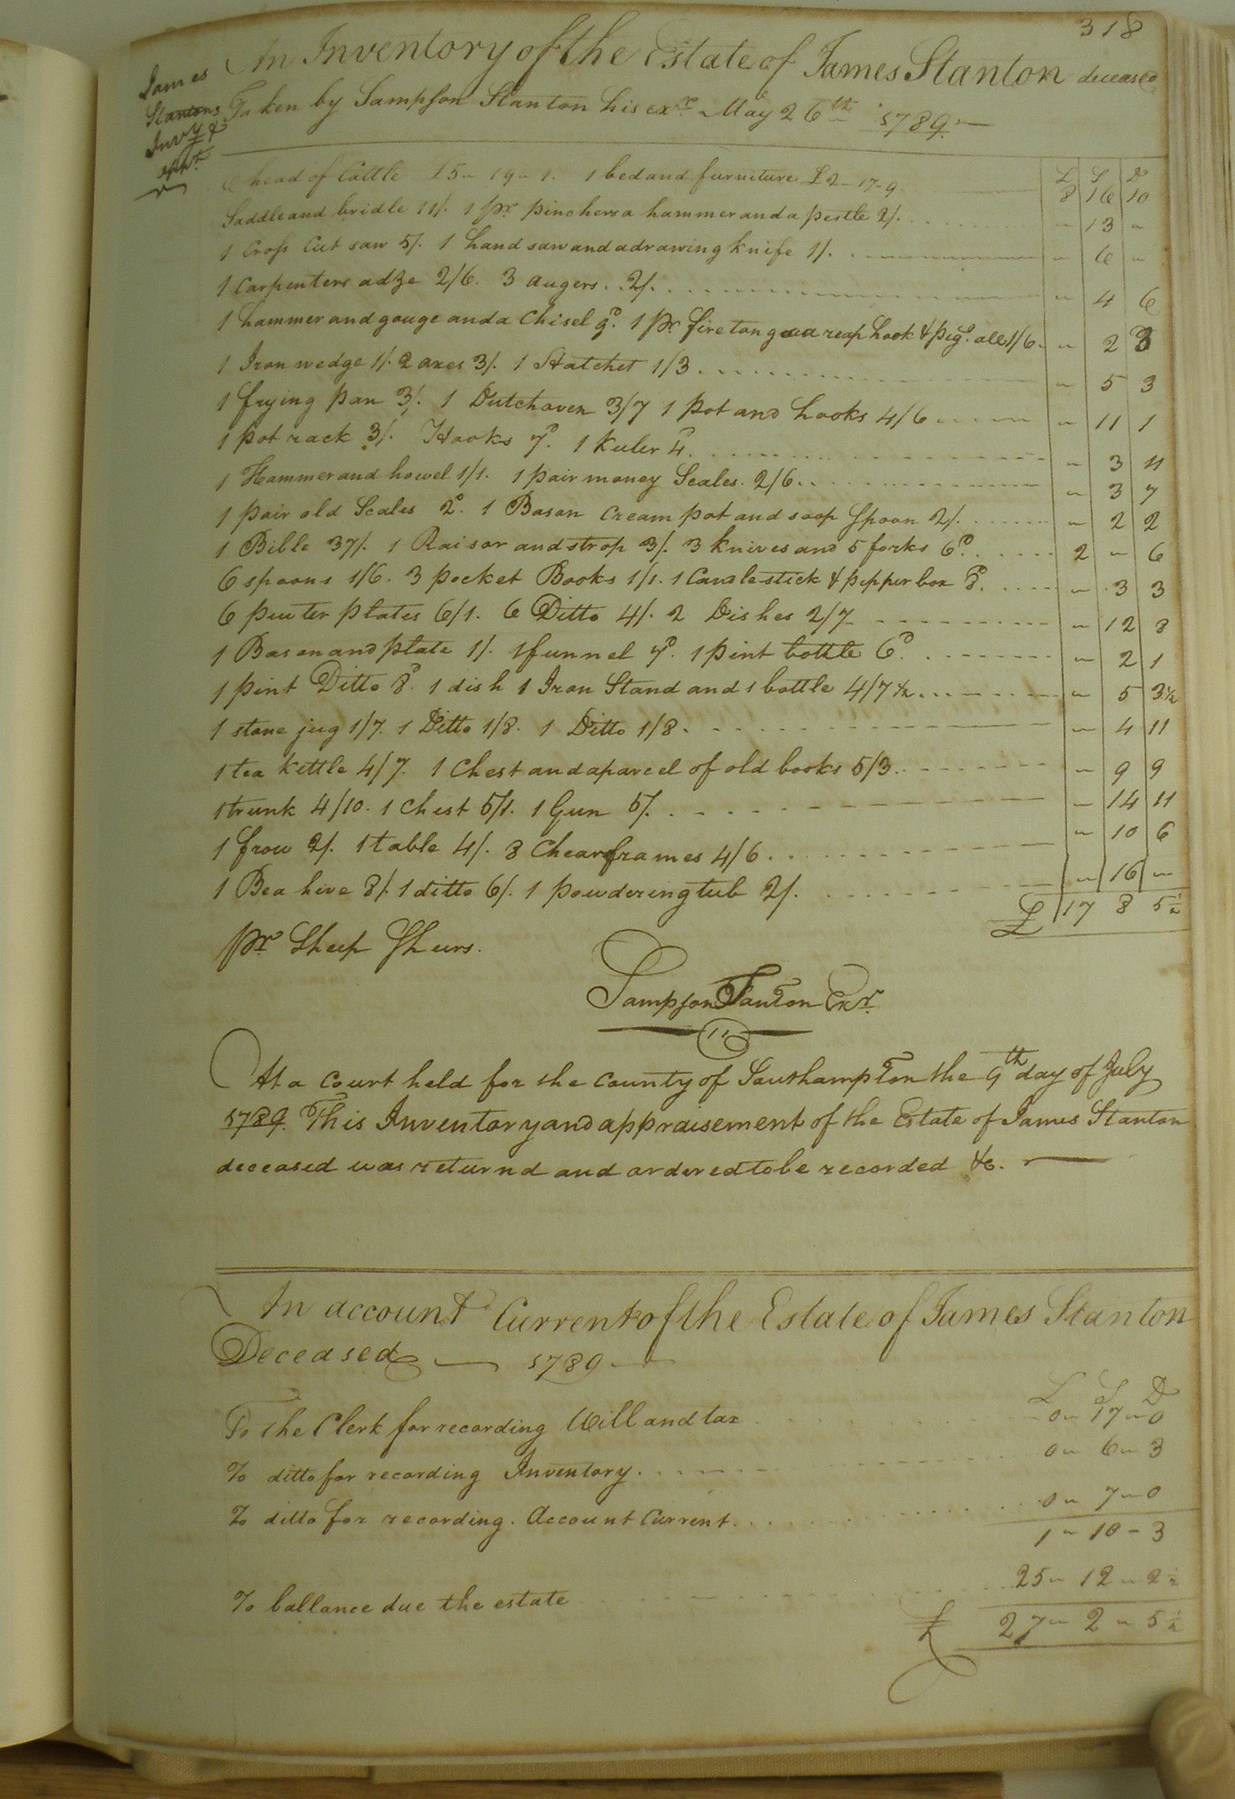 318
James
Stantons
Invy &
An Inventory of the Estate of James Stanton deceased
Taken by Sampson Stanton his exr. May 26th 1789.
L S D
6 head of Cattle £5 - 19 - 1. 1 bed and furniture £2 - 17 - 9 8 16 10
Saddle and bridle 11/. 1 pr. pinchers a hammer and a pestle 2/. " 13 "
1 Cross Cut saw 5/. 1 hand saw and a drawing knife 1/. " 6 "
1 Carpenters adze 2/6. 3 augers. 2/. " 4 6
1 hammer and gouge and a Chisel 9d. 1 pr. fire tongs a reap hook & pegg. all 1/6. " 2 3
1 Iron wedge 1/. 2 axes 3/. 1 Hatchet 1/3 " 5 3
1 frying pan 3/. 1 Dutch oven 3/7 1 pot and hooks 4/6 " 11 1
1 pot rack 3/. Hooks 7d. 1 Keeler 4d. " 3 11
1 Hammer and howel 1/1. 1 pair money Scales. 2/6. " 3 7
1 pair old Scales 2d. 1 Bason Cream pot and soop Spoon 2/. " 2 2
1 Bible 37/. 1 Raisor and strop 3/. 3 knives and 5 forks 6d. 2 " 6
6 spoons 1/6. 3 pocket Books 1/1. 1 Candlestick & pepper box 8d. " 3 3
6 pewter plates 6/1. 6 Ditto 4/. 2 Dishes 2/7 " 12 8
1 Bason and plate 1/. 1 funnel 7d. 1 pint bottle 6d. " 2 1
1 pint Ditto 8d. 1 dish 1 Iron Stand and 1 bottle 4/7 ½ " 5 3½
1 stone jug 1/7. 1 Ditto 1/8. 1 Ditto 1/8. " 4 11
1 tea kettle 4/7. 1 Chest and a parcel of old books 5/3. " 9 9
1 trunk 4/10. 1 Chest 5/1. 1 Gun 5/. " 14 11
1 frow 2/. 1 table 4/. 8 Chear frames 4/6. " 10 6
1 Bea hive 8/. 1 ditto 6/. 1 powdering tub 2/. " 16 "
£ 17 8 5½
pr Sheep Shears.
Sampson Stanton Exr.
At a Court held for the county of Southampton the 9th day of July
1789. This Inventory and appraisement of the Estate of James Stanton
deceased was returnd and ordered to be recorded &c.
An account Current of the Estate of James Stanton
Deceased 1789
L S D
To the Clerk for recording Will and tax 0 - 17 - 0
To ditto for recording Inventory. 0 - 6 - 3
To ditto for recording. Account Current. 0 - 7 - 0
1 - 10 - 3
To ballance due the estate 25 - 12 - 2½
£ 27 - 2 - 5½